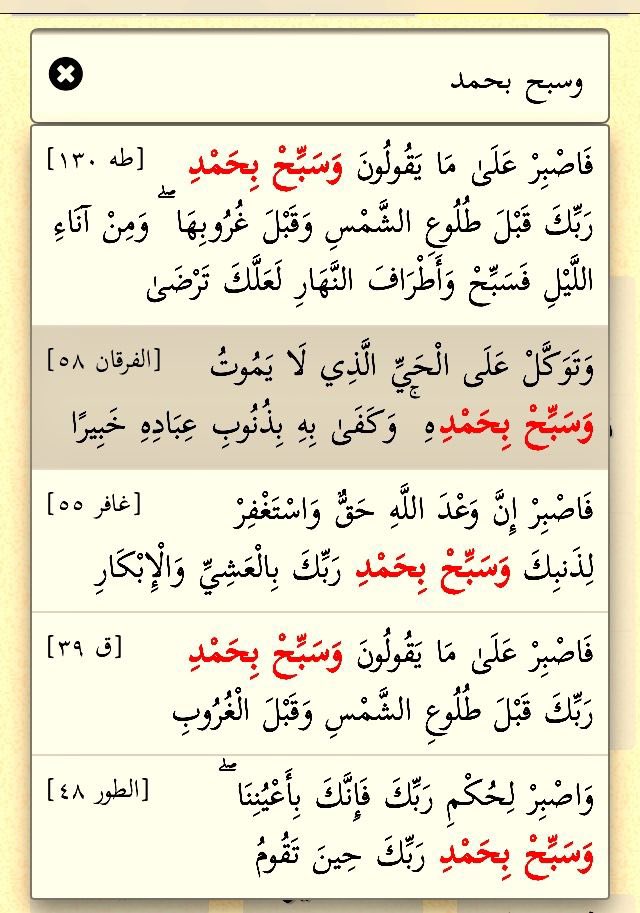 وسبح بحمد
فَاصْبِرْ عَلَىٰ مَا يَقُولُونَ وَسَبِّحْ بِحَمْدِ [طه ١٣٠]
رَبِّكَ قَبْلَ طُلُوعِ الشَّمْسِ وَقَبْلَ غُرُوبِهَا ۖ وَمِنْ آنَاءِ
اللَّيْلِ فَسَبِّحْ وَأَطْرَافَ النَّهَارِ لَعَلَّكَ تَرْضَىٰ
وَتَوَكَّلْ عَلَى الْحَيِّ الَّذِي لَا يَمُوتُ [الفرقان ٥٨]
وَسَبِّحْ بِحَمْدِهِ ۚ وَكَفَىٰ بِهِ بِذُنُوبِ عِبَادِهِ خَبِيرًا
فَاصْبِرْ إِنَّ وَعْدَ اللَّهِ حَقٌّ وَاسْتَغْفِرْ [غافر ٥٥]
لِذَنبِكَ وَسَبِّحْ بِحَمْدِ رَبِّكَ بِالْعَشِيِّ وَالْإِبْكَارِ
فَاصْبِرْ عَلَىٰ مَا يَقُولُونَ وَسَبِّحْ بِحَمْدِ [ق ٣٩]
رَبِّكَ قَبْلَ طُلُوعِ الشَّمْسِ وَقَبْلَ الْغُرُوبِ
وَاصْبِرْ لِحُكْمِ رَبِّكَ فَإِنَّكَ بِأَعْيُنِنَا ۖ [الطور ٤٨]
وَسَبِّحْ بِحَمْدِ رَبِّكَ حِينَ تَقُومُ